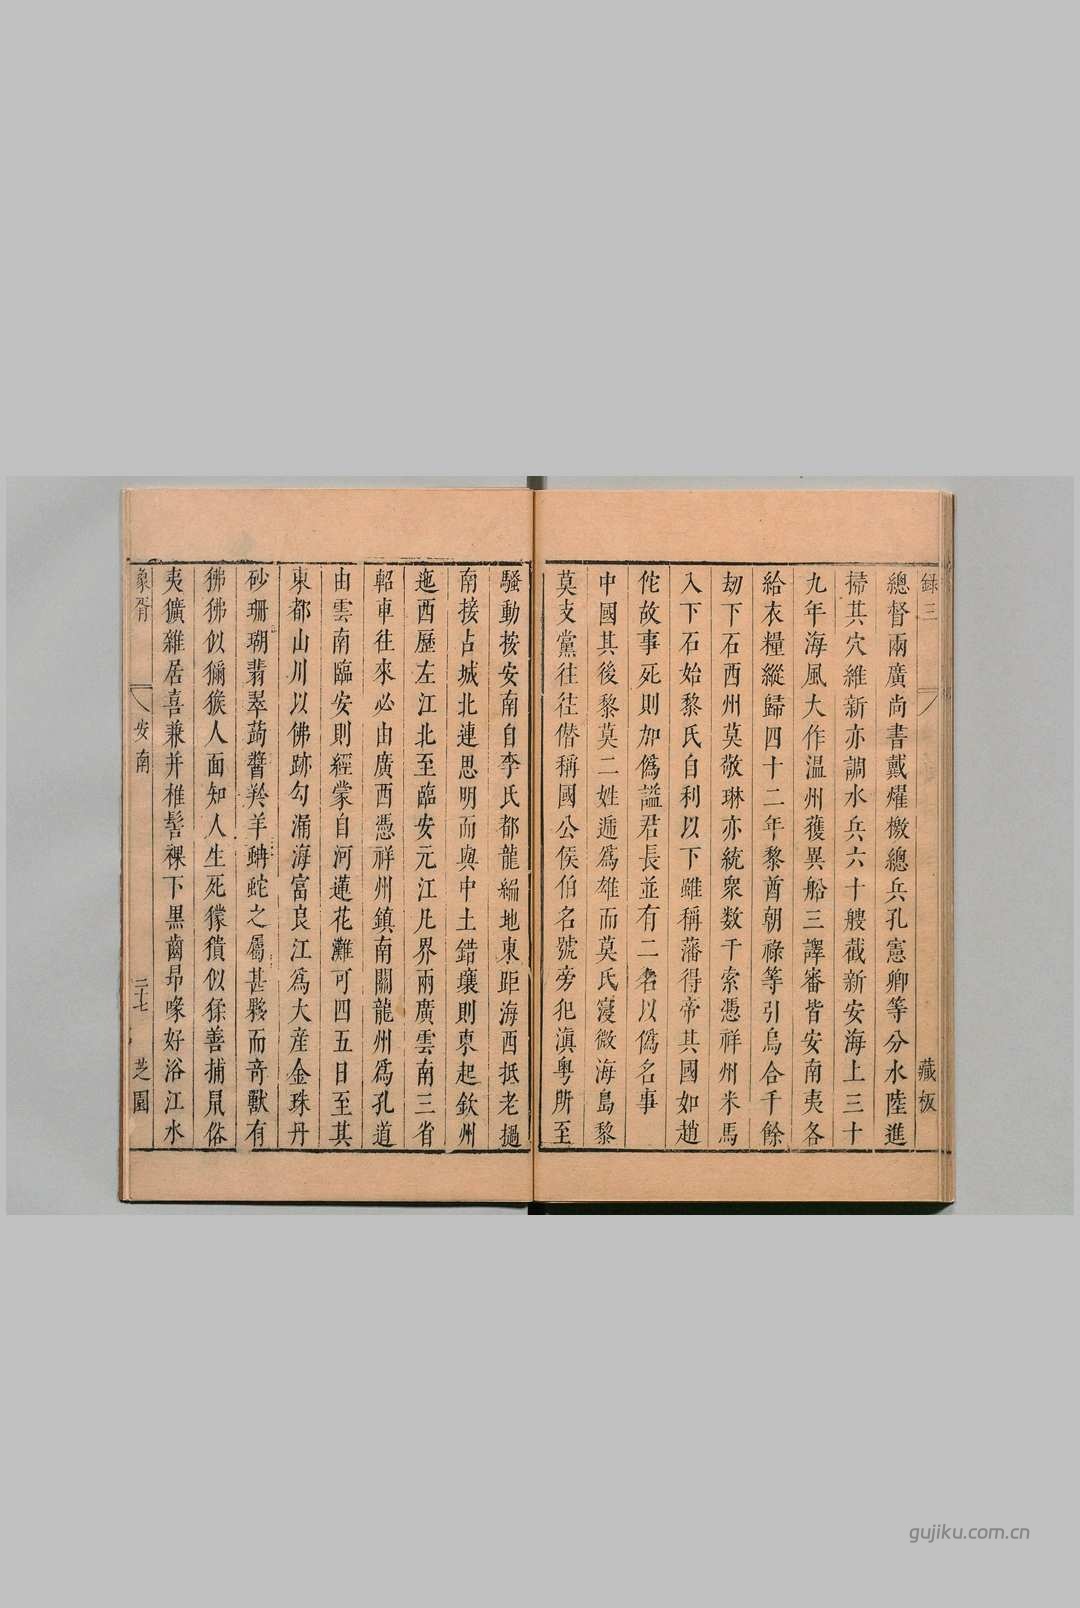 錄三
藏板
總督兩廣尚書戴燿檄總兵孔憲卿等分水陸進
掃其穴維新亦調水兵六十艘截新安海上三十
九年海風大作温州獲異船三譯審皆安南夷各
給衣糧縱歸四十二年黎酋朝祿等引烏合千餘
刼下石西州莫敬琳亦統衆数千索憑祥州米馬
入下石始黎氏自利以下雖稱藩得帝其國如趙
佗故事死則加僞謚君長並有二名以僞名事
中國其後黎莫二姓逓爲雄而莫氏寖微海島黎
莫支黨往往僭稱國公侯伯名號旁犯滇粤所至
騷動按安南自李氏都龍編地東距海西抵老撾
南接占城北連思明而與中土錯壤則東起欽州
迤西歷左江北至臨安元江凡界兩廣雲南三省
軺車往來必由廣西憑祥州鎮南關龍州爲孔道
由雲南臨安則經蒙自河蓮花灘可四五日至其
東都山川以佛跡勾漏海富良江爲大産金珠丹
砂珊瑚翡翠蒟醬羚羊蚺蛇之屬甚夥而竒獸有
狒狒似獼猴人面知人生死獴𧴂似猱善捕鼠俗
夷獷雜居喜兼并椎髻裸下黒齒昂喙好浴江水
象胥
安南
二十七
芝園
gujiku.com.cn